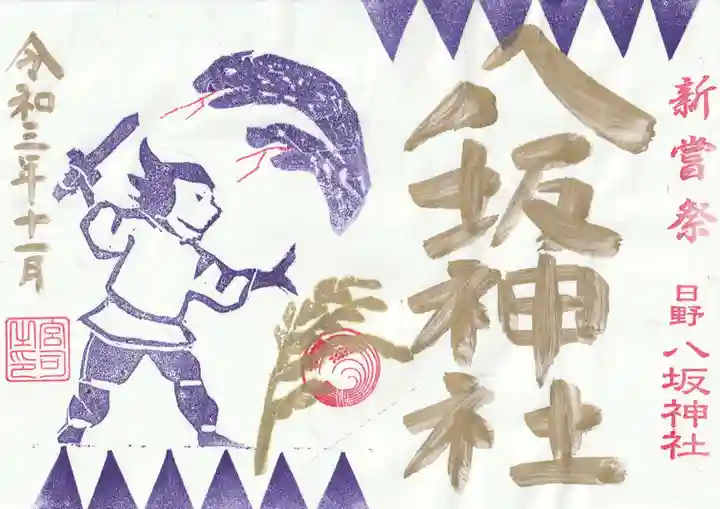 新嘗祭
日野 八坂神社
八坂神社
令和三年十一月
宮司之印